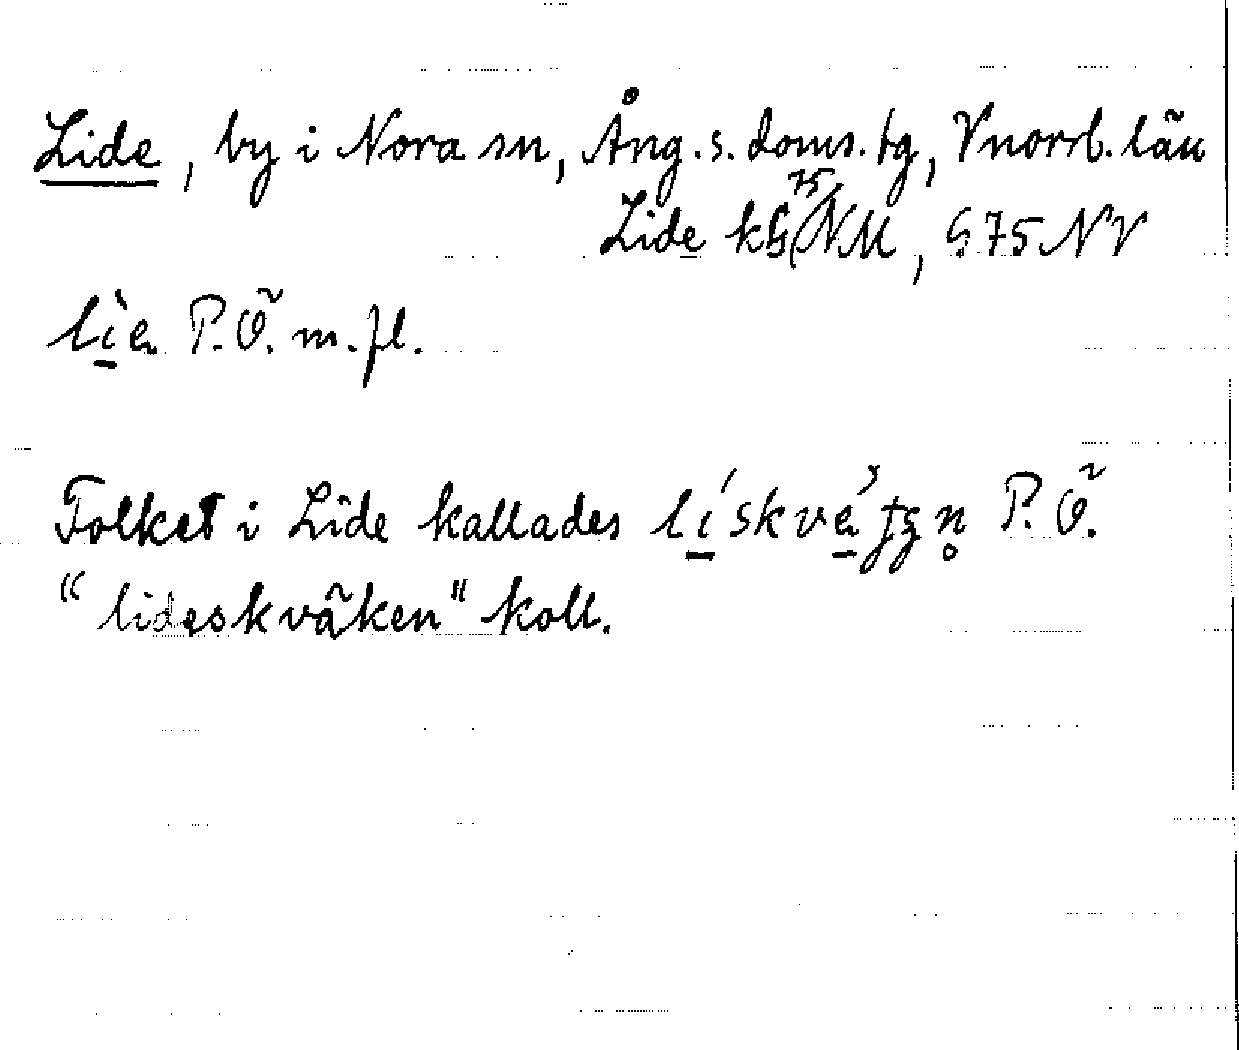 Lide, by i Nora sn, Ång. s. doms. tg, Vnorrl. län
Lide kG 75 NM, G75 NV
lìe P.Ö. m.fl.
Folket i Lide kallades P.Ö.
"lideskväken" koll.